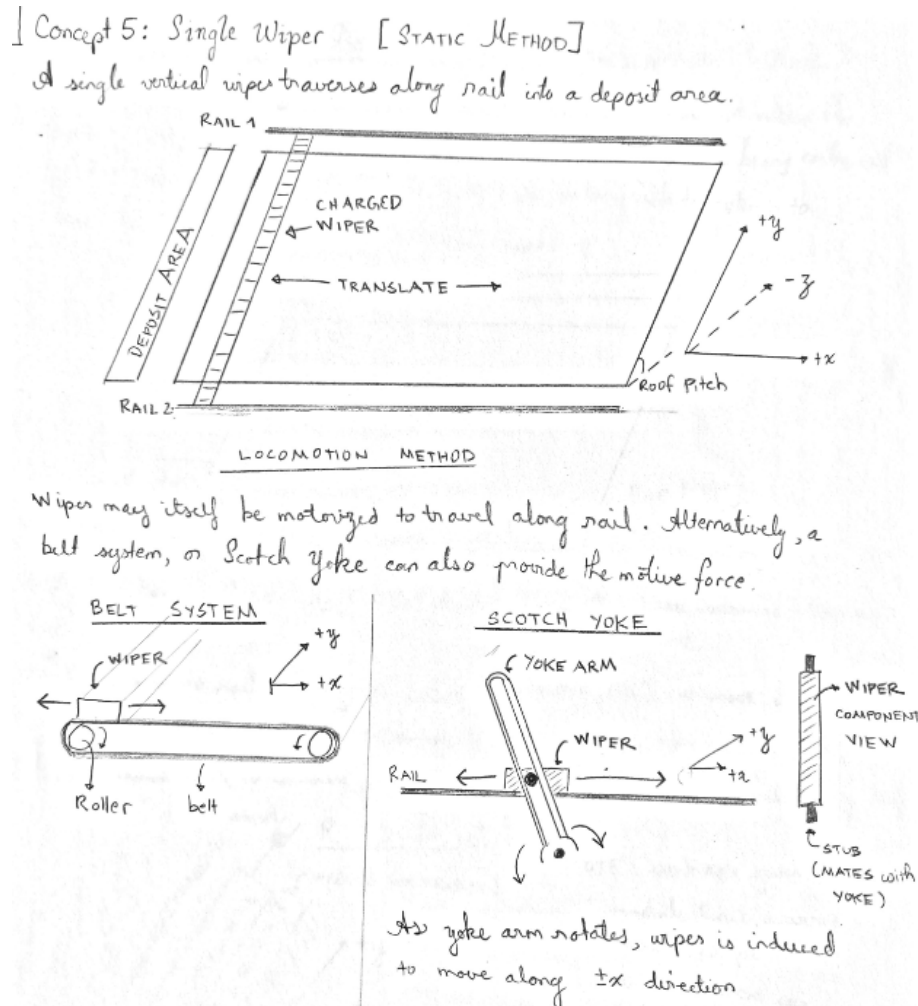 Concept 5: Single Wiper [STATIC METHOD]
A single vertical wiper traverses along rail into a deposit area.
RAIL 1
DEPOSIT AREA
CHARGED
WIPER
TRANSLATE
+y
-z
+x
Roof Pitch
RAIL 2
LOCOMOTION METHOD
Wiper may itself be motorized to travel along rail. Alternatively, a
belt system, or Scotch Yoke can also provide the motive force.
BELT SYSTEM
WIPER
+y
+x
Roller
belt
SCOTCH YOKE
YOKE ARM
WIPER
RAIL
+y
+x
WIPER
COMPONENT
VIEW
STUB
(MATES with
YOKE)
As yoke arm rotates, wiper is induced
to move along ±x direction